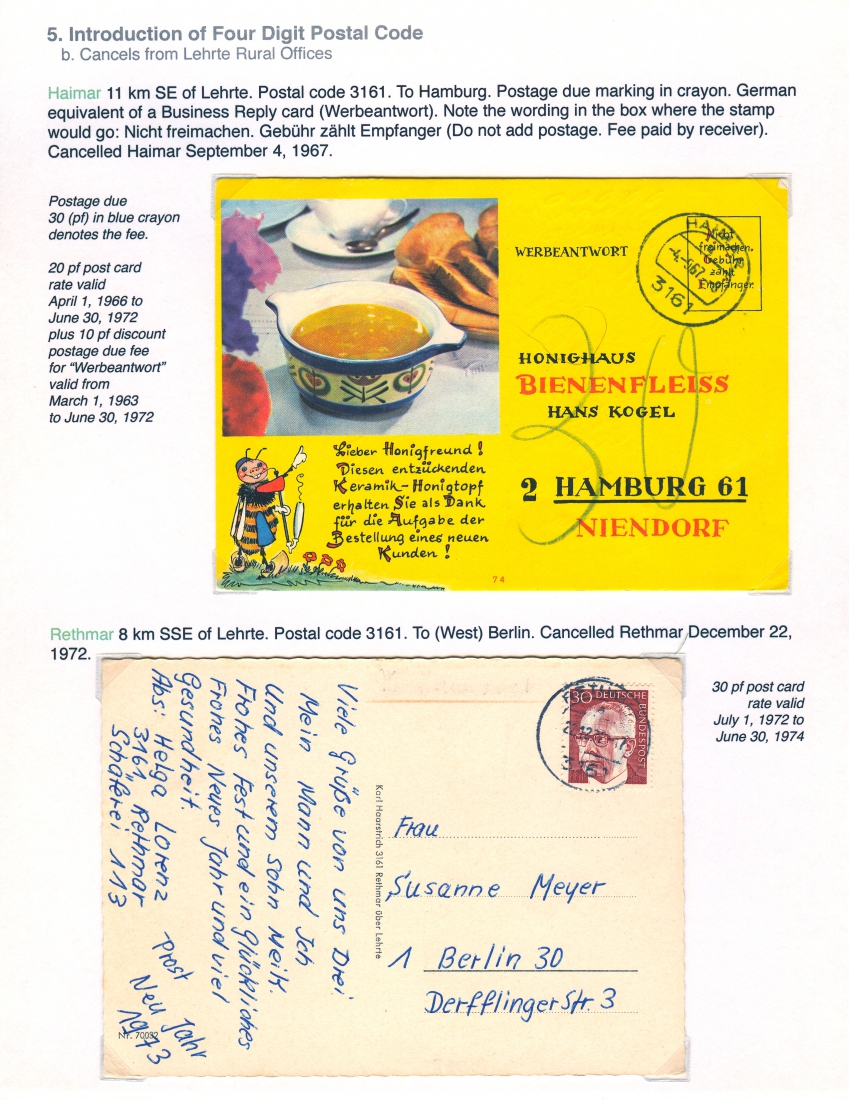 5. Introduction of Four Digit Postal Code
b. Cancels from Lehrte Rural Offices
Haimar 11 km SE of Lehrte. Postal code 3161. To Hamburg. Postage due marking in crayon. German
equivalent of a Business Reply card (Werbeantwort). Note the wording in the box where the stamp
would go: Nicht freimachen. Gebühr zählt Empfanger (Do not add postage. Fee paid by receiver).
Cancelled Haimar September 4, 1967.
Postage due
30 (pf) in blue crayon
denotes the fee.
20 pf post card
rate valid
April 1, 1966 to
June 30, 1972
plus 10 pf discount
postage due fee
for “Werbeantwort”
valid from
March 1, 1963
to June 30, 1972
WERBEANTWORT
Nicht
freimachen.
Gebühr
zählt
Empfänger.
HAIMAR
-4.-9.67
3161
30
HONIGHAUS
BIENENFLEISS
HANS KOGEL
2 HAMBURG 61
NIENDORF
Lieber Honigfreund !
Diesen entzückenden
Keramik-Honigtopf
erhalten Sie als Dank
für die Aufgabe der
Bestellung eines neuen
Kunden !
74
Rethmar 8 km SSE of Lehrte. Postal code 3161. To (West) Berlin. Cancelled Rethmar December 22,
1972.
30 pf post card
rate valid
July 1, 1972 to
June 30, 1974
Viele Grüße von uns Drei
Mein Mann und Ich
Und unserem Sohn Meik.
Frohes Fest und ein glückliches
Frohes Neues Jahr und viel
Gesundheit.
Abs: Helga Lorenz
3161 Rethmar
Schäferei 113
Prost
Neu Jahr
1973
Nr. 70032
Karl Haarstrich 3161 Rethmar über Lehrte
30 DEUTSCHE
BUNDESPOST
3161
Frau
Susanne Meyer
1 Berlin 30
Derfflingerstr. 3